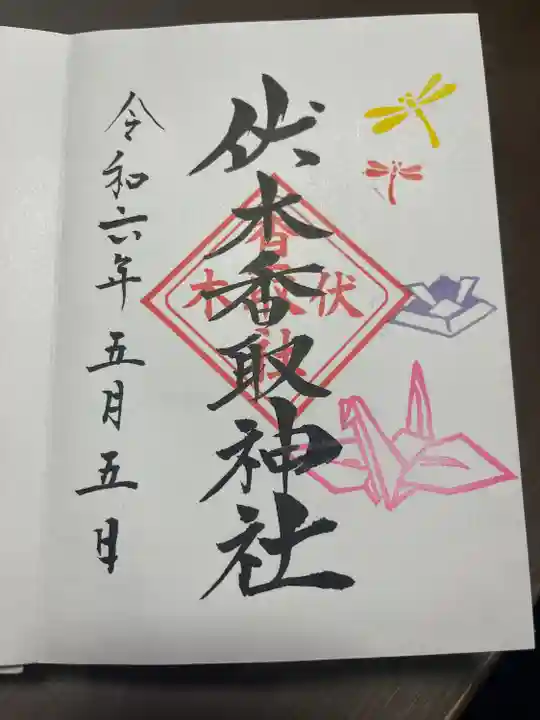 伏木香取神社
令和六年五月五日
伏木
香取
社